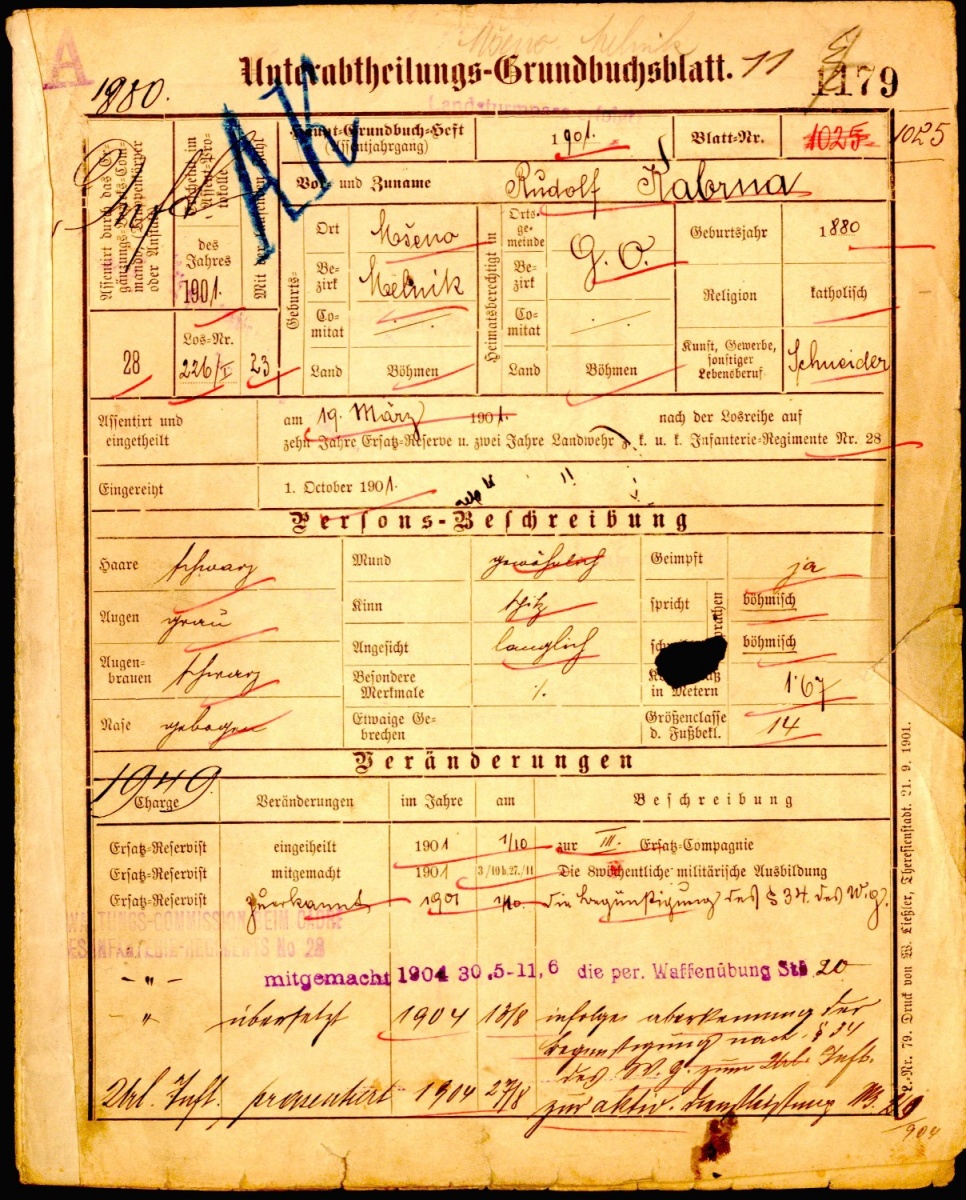 A
Mšeno Melnik
1880.
Unterabtheilungs-Grundbuchsblatt. 11
1179
AK
Haupt-Grundbuch-Heft
(Assentjahrgang)
1901.
Blatt-Nr.
1025
1025
Assentirt durch das Ergänzungs-Bezirks-Commando (Truppenkörper oder Anstalt)
Erscheint im Assent-Protokolle
des Jahres
1901.
Los-Nr.
28
226/I
23
Vor- und Zuname
Rudolf Kabrna
Geburts-
Ort
Mšeno
Bezirk
Mělnik
Comitat
Land
Böhmen
Heimatsberechtigt in
Ortsgemeinde
G. O.
Bezirk
Comitat
Land
Böhmen
Geburtsjahr
1880
Religion
katholisch
Kunst, Gewerbe, sonstiger Lebensberuf
Schneider
Assentirt und eingetheilt
am 19. März 1901. nach der Losreihe auf
zehn Jahre Ersatz-Reserve u. zwei Jahre Landwehr z. k. u. k. Infanterie-Regimente Nr. 28
Eingereiht
1. October 1901.
Persons-Beschreibung
Haare schwarz
Mund gewöhnlich
Geimpft ja
Augen grau
Kinn spitz
spricht böhmisch
Augenbrauen schwarz
Angesicht länglich
böhmisch
Besondere Merkmale ./.
in Metern 1·67
Nase gebogen
Etwaige Gebrechen
Größenclasse d. Fußbekl. 14
Veränderungen
1949
Charge
Veränderungen
im Jahre
am
Beschreibung
Ersatz-Reservist eingetheilt 1901 1/10 zur III. Ersatz-Compagnie
Ersatz-Reservist mitgemacht 1901 3/10 b. 27./11 Die 8wöchentliche militärische Ausbildung
Ersatz-Reservist Zuerkannt 1901 1/10. die Begünstigung des § 34. des W. g.
-„- mitgemacht 1904 30.5-11.6 die per. Waffenübung 20
„ übersetzt 1904 13/8 infolge aberkennung der
Begünstigung nach § 34
des W. g. zum Url. Inft.
Url. Inft. präsentiert 1904 27/8 zur aktiv. Dienstleistung
904
L.-Nr. 79. Druck von W. Ließler, Theresienstadt. 21. 9. 1901.